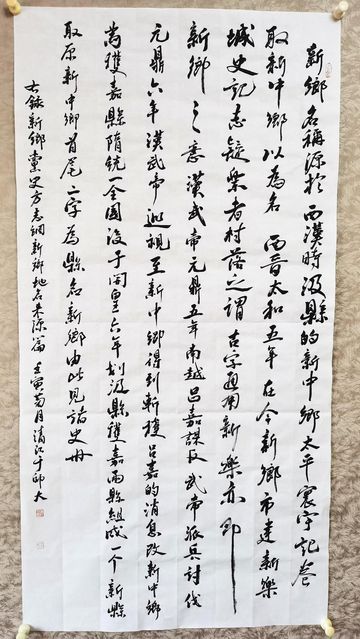 新鄉名稱源於西漢時汲縣的新中鄉太平寰宇記卷
取新中鄉以為名西晉太和五年在今新鄉市建新樂
城史記志疑樂者村落之謂古字通用新樂亦即
新鄉之意漢武帝元鼎五年南越呂嘉謀反武帝派兵討伐
元鼎六年漢武帝巡視至新中鄉得到斬獲呂嘉的消息改新中鄉
為獲嘉縣隋統一全國後于開皇六年划汲縣獲嘉兩縣組成一个新縣
取原新中鄉首尾二字為縣名新鄉由此見諸史册
右錄新鄉黨史方志網新鄉地名來源篇壬寅菊月清江于印大